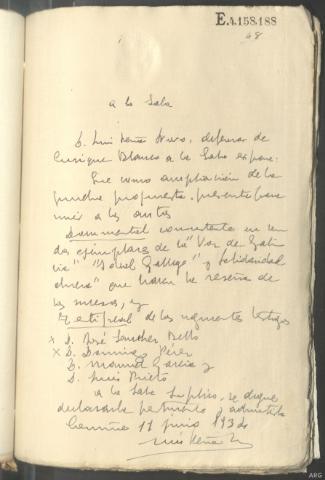 E.4.158.188
68
a la Sala
D. Luis Peña Novo, defensor de
Enrique Blanco a la Sala expone:
Que como ampliación de la
prueba propuesta, presenta para
unir a los autos
Documental consistente en sen
dos ejemplares de la "Voz de Gali
cia" "Ideal Gallego" y Solidaridad
obrera" que hacen la reseña de
los sucesos, y
Testifical de los siguientes testigos
x D. José Sanchez Bello
x D. Domingo Pérez
D. Manuel García y
D. Luis Prieto
a la Sala Suplico, se digne
declararla pertinente y admitirla
Coruña 11 junio 193
Luis Peña N
ARG